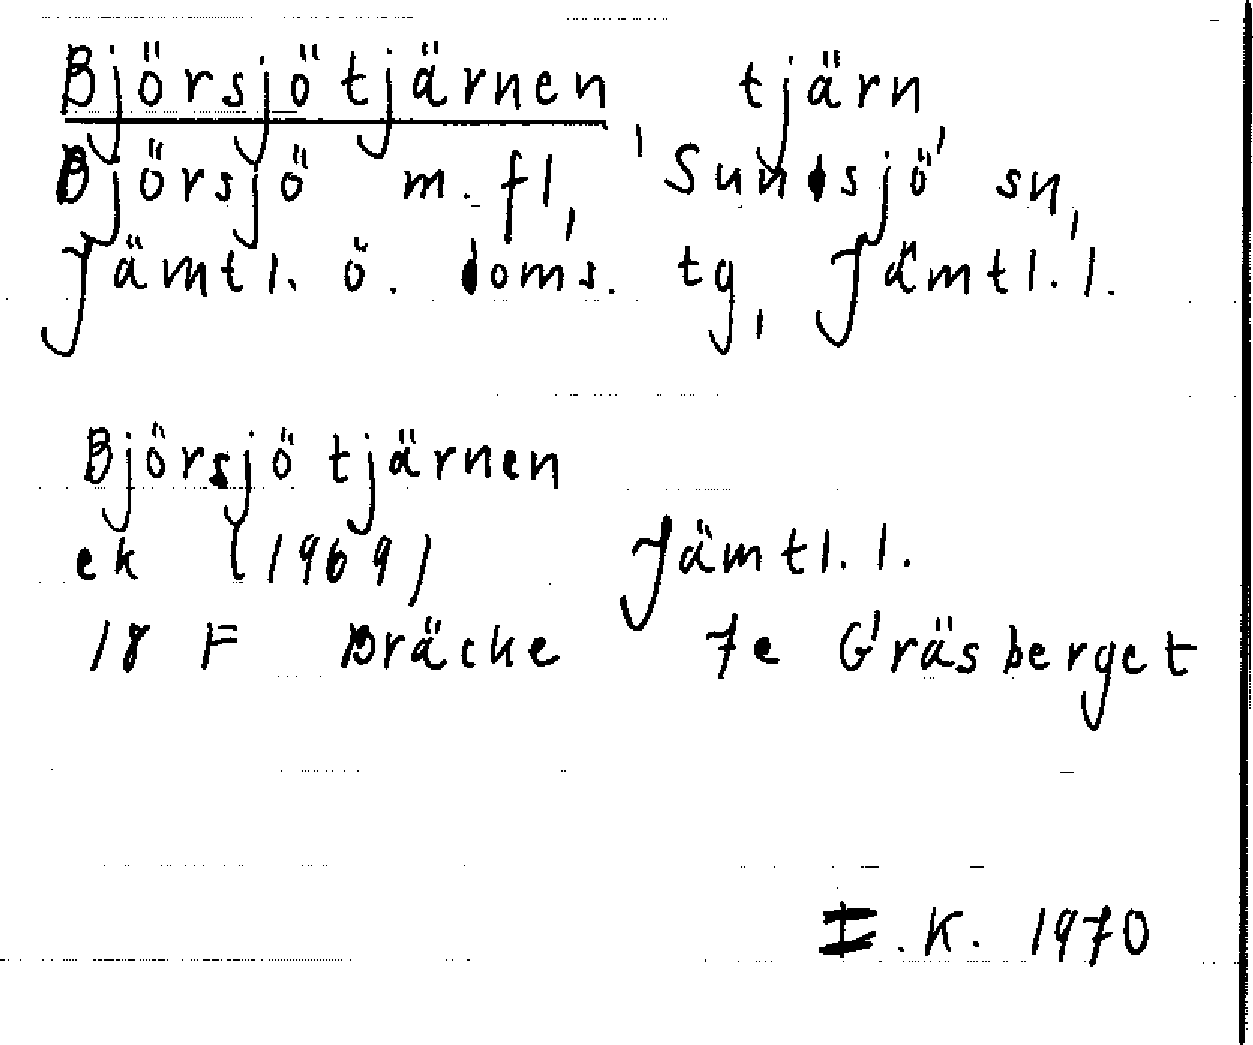 Björsjötjärnen tjärn,
Björsjö m. fl., Sundsjö sn,
Jämtl. ö. doms. tg, Jämtl. l.
Björsjötjärnen
ek (1969) Jämtl. l.
18 F Bräcke 7e Gräsberget
I. K. 1970